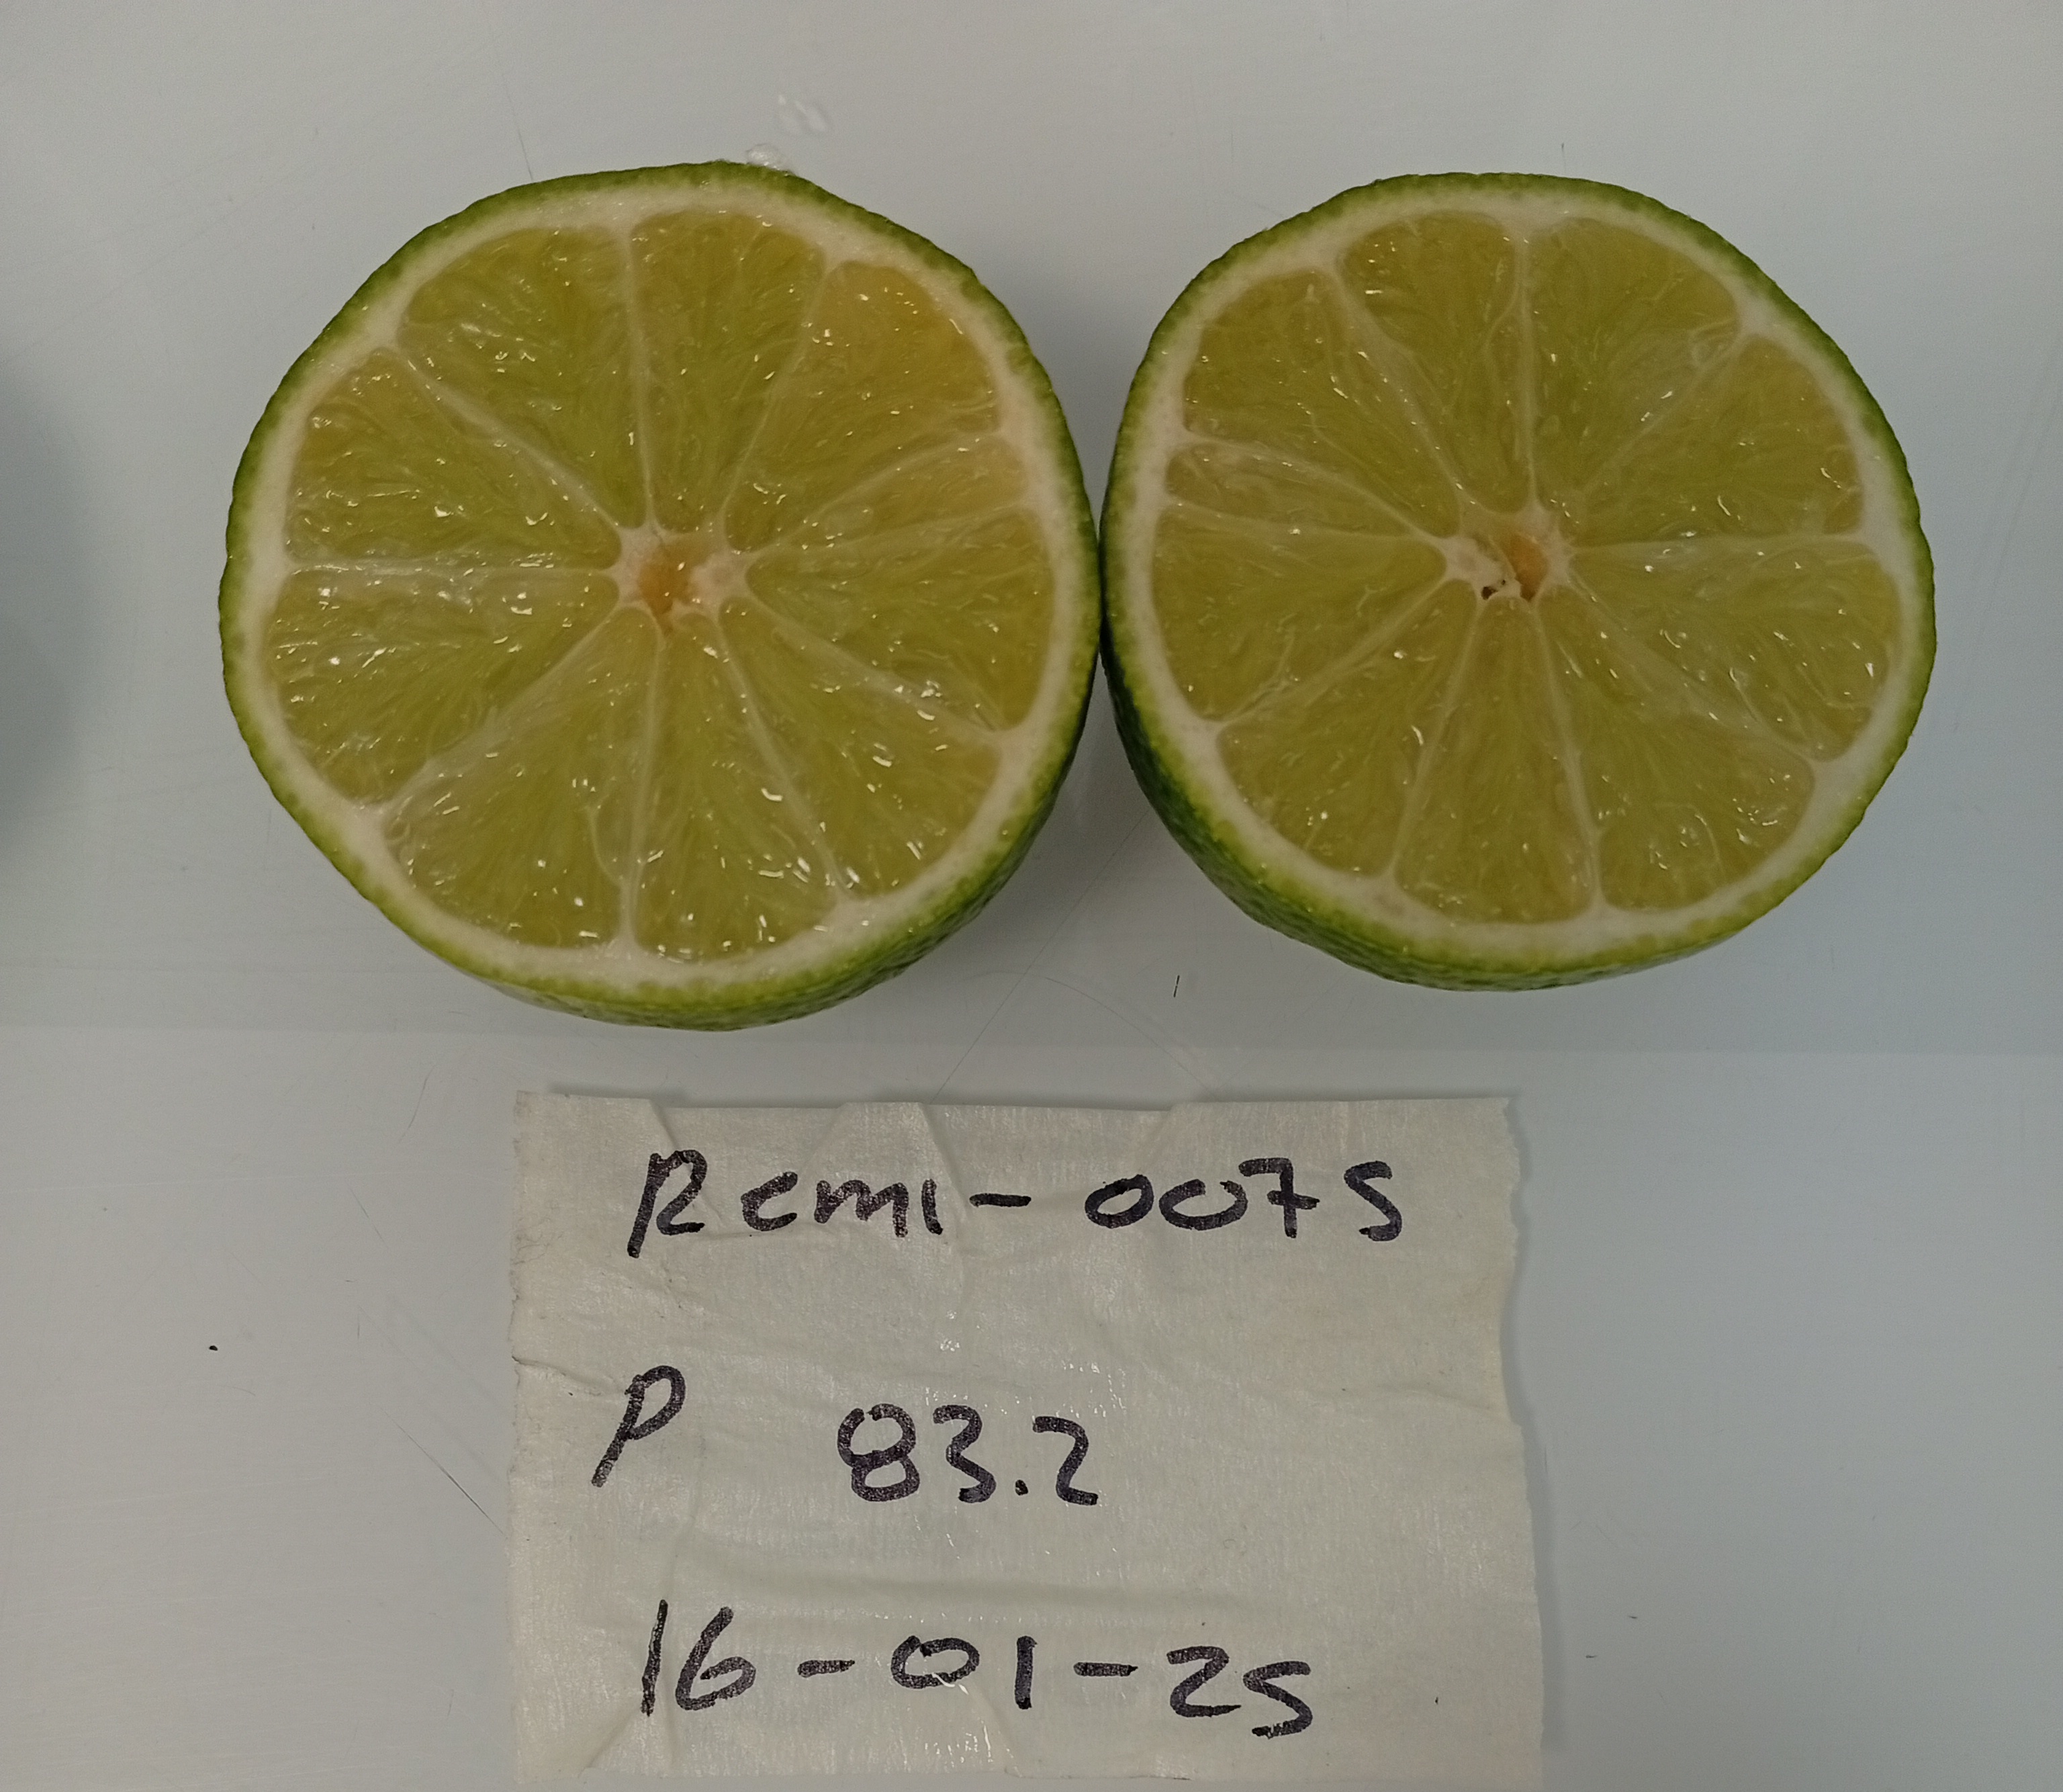 Remi-0075
P 83.2
16-01-25